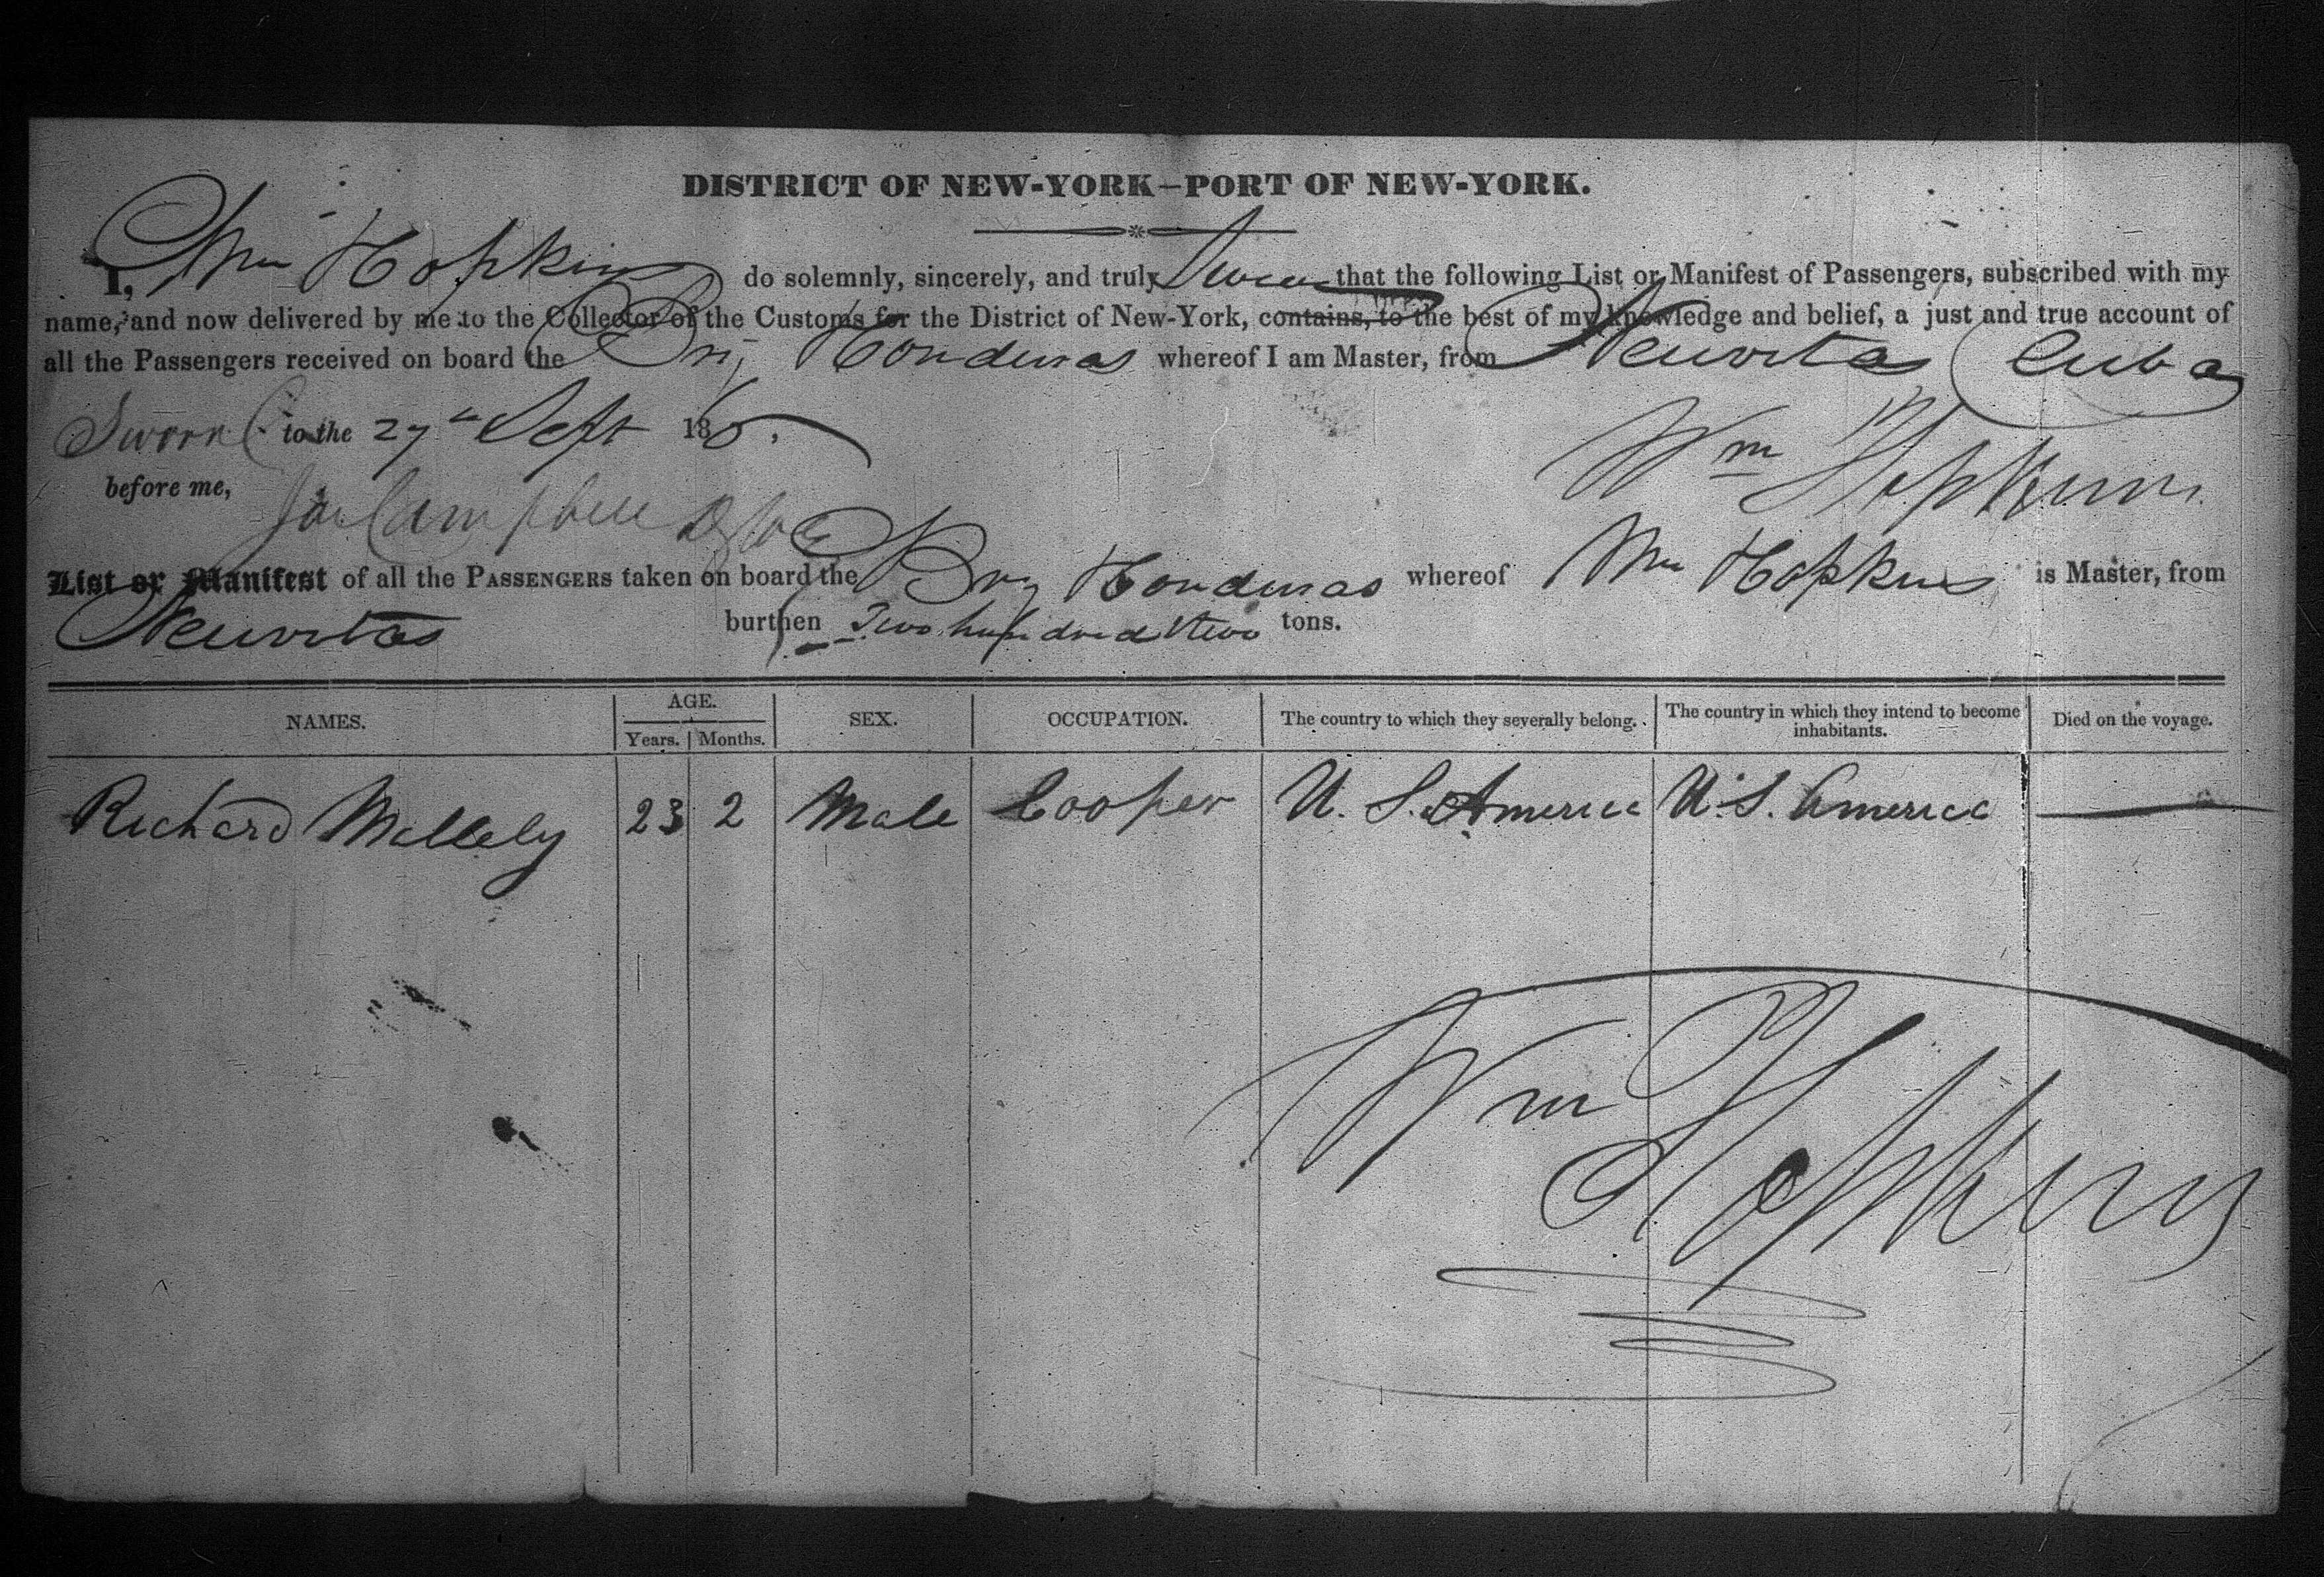 DISTRICT OF NEW-YORK—PORT OF NEW-YORK.
I, Wm Hopkins do solemnly, sincerely, and truly Swear that the following List or Manifest of Passengers, subscribed with my
name, and now delivered by me to the Collector of the Customs for the District of New-York, contains, to the best of my knowledge and belief, a just and true account of
all the Passengers received on board the Brig Honduras whereof I am Master, from Neuvitas Cuba
Sworn to the 27th Sept 18
Wm Hopkins
before me, Campbell
List or Manifest of all the PASSENGERS taken on board the Brig Honduras whereof Wm Hopkins is Master, from
Neuvitas burthen Two hundred & two tons.
NAMES. AGE. Years. Months. SEX. OCCUPATION. The country to which they severally belong. The country in which they intend to become inhabitants. Died on the voyage.
Richard Mellely 23 2 Male Cooper U. S. America U. S. America —
Wm Hopkins